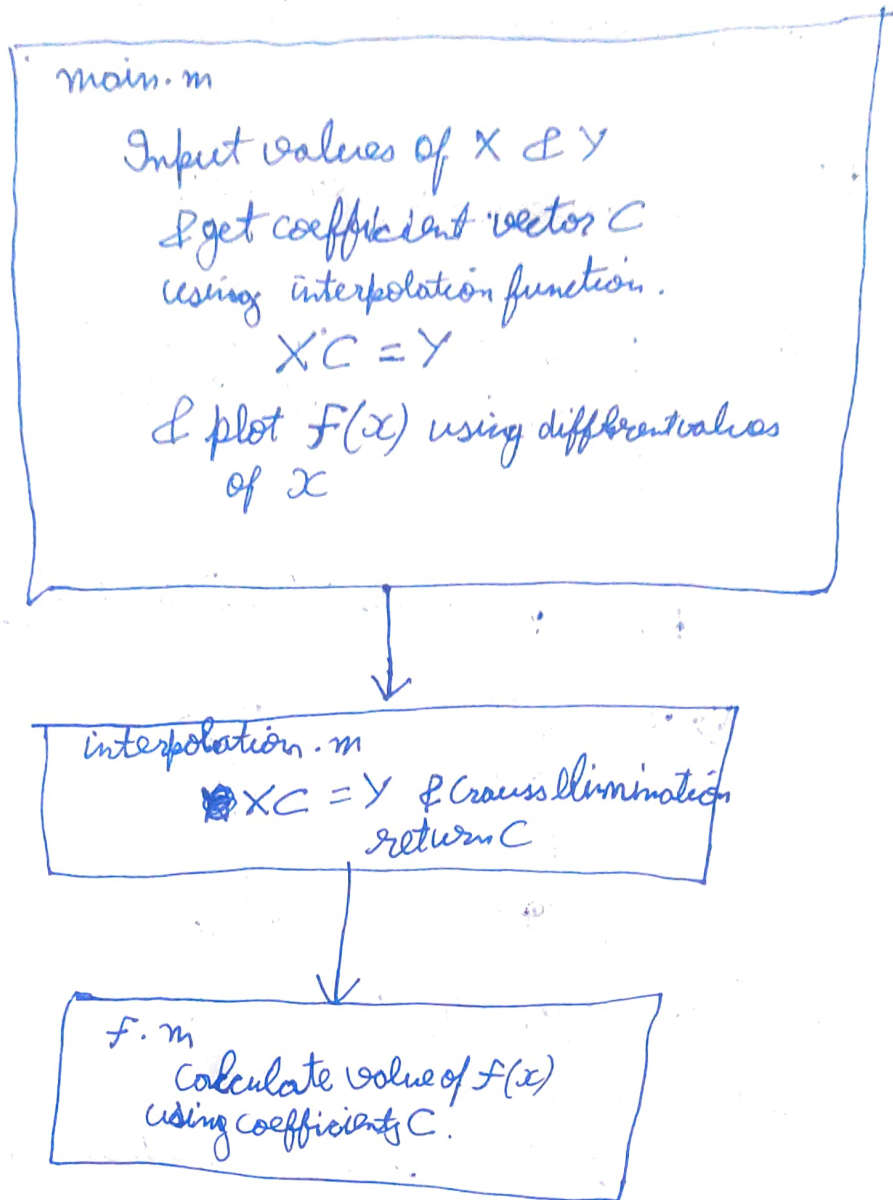 main.m
Input values of X & Y
& get coefficient vector C
using interpolation function.
XC = Y
& plot f(x) using different values
of x
interpolation.m
XC = Y & Gauss Elimination
return C
f.m
Calculate value of f(x)
using coefficients C.